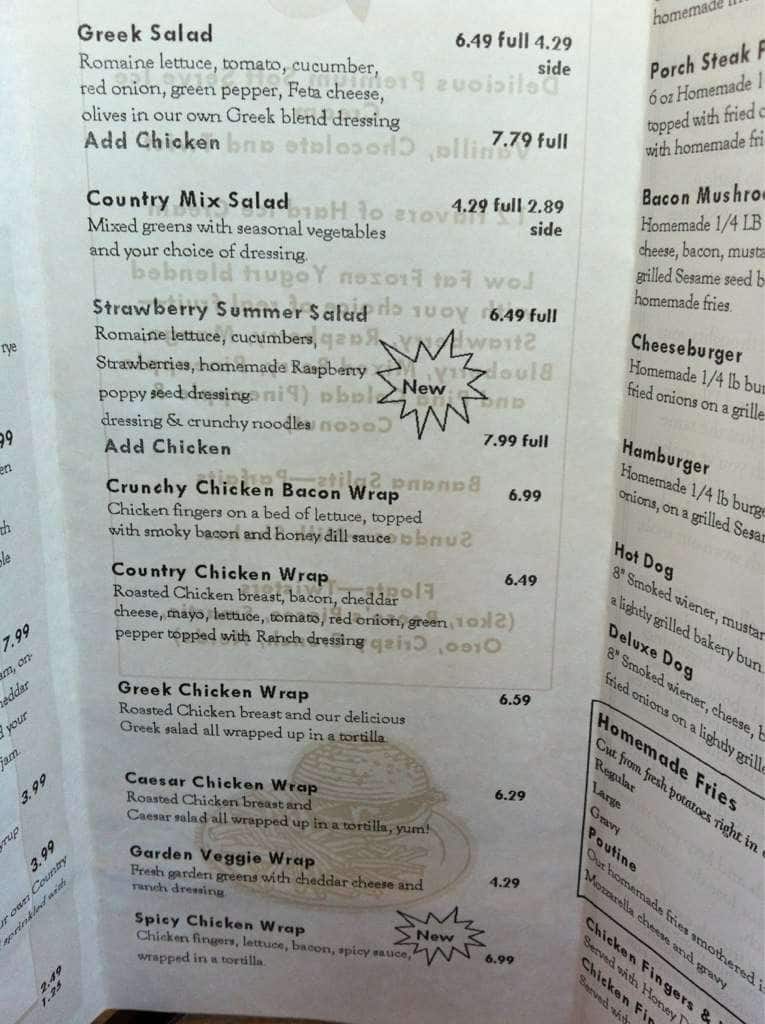 Greek Salad 6.49 full 4.29
side
Romaine lettuce, tomato, cucumber,
red onion, green pepper, Feta cheese,
olives in our own Greek blend dressing
Add Chicken 7.79 full
Country Mix Salad 4.29 full 2.89
side
Mixed greens with seasonal vegetables
and your choice of dressing.
Strawberry Summer Salad 6.49 full
Romaine lettuce, cucumbers,
Strawberries, homemade Raspberry
New
poppy seed dressing.
dressing & crunchy noodles
Add Chicken 7.99 full
Crunchy Chicken Bacon Wrap 6.99
Chicken fingers on a bed of lettuce, topped
with smoky bacon and honey dill sauce
Country Chicken Wrap 6.49
Roasted Chicken breast, bacon, cheddar
cheese, mayo, lettuce, tomato, red onion, green
pepper topped with Ranch dressing
Greek Chicken Wrap 6.59
Roasted Chicken breast and our delicious
Greek salad all wrapped up in a tortilla
Caesar Chicken Wrap 6.29
Roasted Chicken breast and
Caesar salad all wrapped up in a tortilla, yum!
Garden Veggie Wrap
Fresh garden greens with cheddar cheese and 4.29
ranch dressing
Spicy Chicken Wrap
New
Chicken fingers, lettuce, bacon, spicy sauce, 6.99
wrapped in a tortilla.
homemade
Porch Steak
6 oz Homemade
topped with fried
with homemade
Bacon
Homemade 1/4 LB
cheese, bacon,
grilled Sesame seed
homemade fries.
Cheeseburger
Homemade 1/4 lb
fried onions on a
Hamburger
Homemade 1/4 lb
onions, on a grilled
Hot Dog
8" Smoked wiener,
a lightly grilled bakery bun.
Deluxe Dog
8" Smoked wiener, cheese,
fried onions on a lightly
Homemade Fries
Cut from fresh potatoes right in
Regular
Large
Gravy
Poutine
Our homemade fries smothered
Mozzarella cheese and gravy
Chicken Fingers &
Served with Honey
Chicken
Served with
rye
7.99
jam.
3.99
3.99
own Country
sprinkled with
2.49
1.25